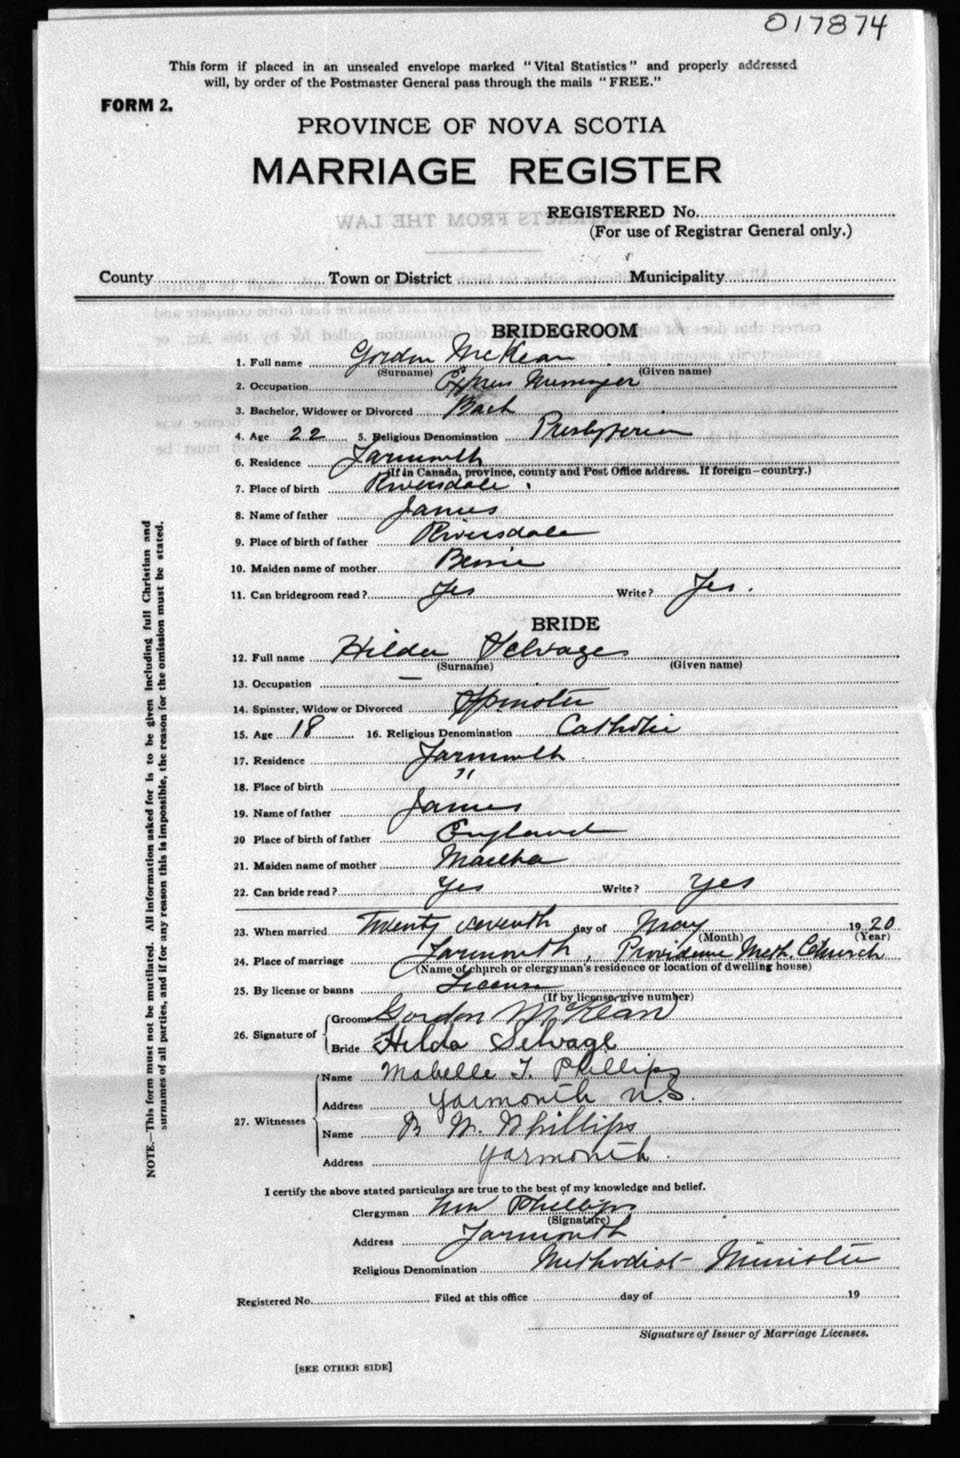 017874
This form if placed in an unsealed envelope marked "Vital Statistics" and properly addressed
will, by order of the Postmaster General pass through the mails "FREE."
FORM 2.
PROVINCE OF NOVA SCOTIA
MARRIAGE REGISTER
REGISTERED No.
(For use of Registrar General only.)
County Town or District Municipality
BRIDEGROOM
1. Full name Gordon McKean
(Surname) (Given name)
2. Occupation Express
3. Bachelor, Widower or Divorced Bach
4. Age 22 5. Religious Denomination Presbyterian
6. Residence Yarmouth
(If in Canada, province, county and Post Office address. If foreign—country.)
7. Place of birth Riversdale.
8. Name of father James
9. Place of birth of father Riversdale
10. Maiden name of mother
11. Can bridegroom read? Yes Write? Yes.
BRIDE
12. Full name Hilda Selvage
(Surname) (Given name)
13. Occupation —
14. Spinster, Widow or Divorced Spinster
15. Age 18 16. Religious Denomination Catholic
17. Residence Yarmouth
18. Place of birth "
19. Name of father James
20 Place of birth of father England
21. Maiden name of mother Martha
22. Can bride read? Yes Write? Yes
23. When married Twenty seventh day of May 1920
(Month) (Year)
24. Place of marriage Yarmouth, Providence Meth. Church
(Name of church or clergyman's residence or location of dwelling house)
25. By license or banns License
(If by license, give number)
26. Signature of Groom Gordon McKean
Bride Hilda Selvage
27. Witnesses Name Mabelle T. Phillips
Address Yarmouth N.S.
Name B W. Phillips
Address Yarmouth.
I certify the above stated particulars are true to the best of my knowledge and belief.
Clergyman Wm Phillips
(Signature)
Address Yarmouth
Religious Denomination Methodist Minister
Registered No. Filed at this office day of 19
Signature of Issuer of Marriage Licenses.
[SEE OTHER SIDE]
NOTE.—This form must not be mutilated. All information asked for is to be given including full Christian and
surnames of all parties, and if for any reason this is impossible, the reason for the omission must be stated.